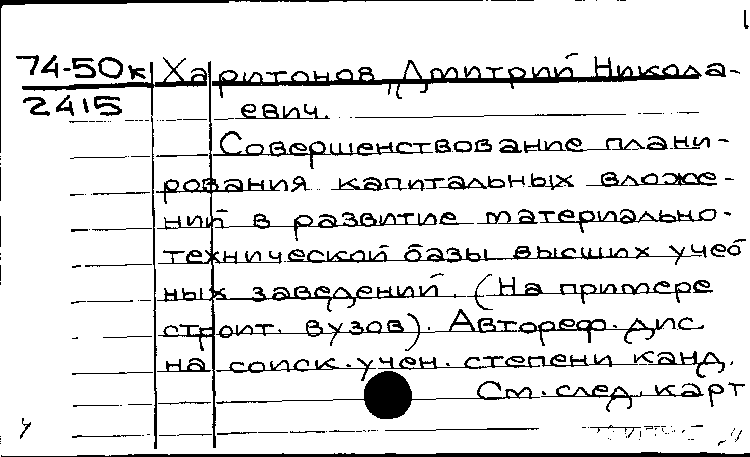 1
74-50к Харитонов, Дмитрий Никола-
2415 евич.
Совершенствование плани-
рования капитальных вложе-
ний в развитие материально-
технической базы высших учеб
ных заведений. (На примере
строит. вузов). Автореф. дис.
на соиск. учен. степени канд.
См. след. карт